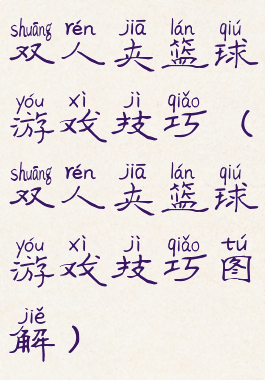 shuāng rén jiā lán qiú
双人夹篮球
yóu xì jì qiǎo
游戏技巧（
shuāng rén jiā lán qiú
双人夹篮球
yóu xì jì qiǎo tú
游戏技巧图
jiě
解）